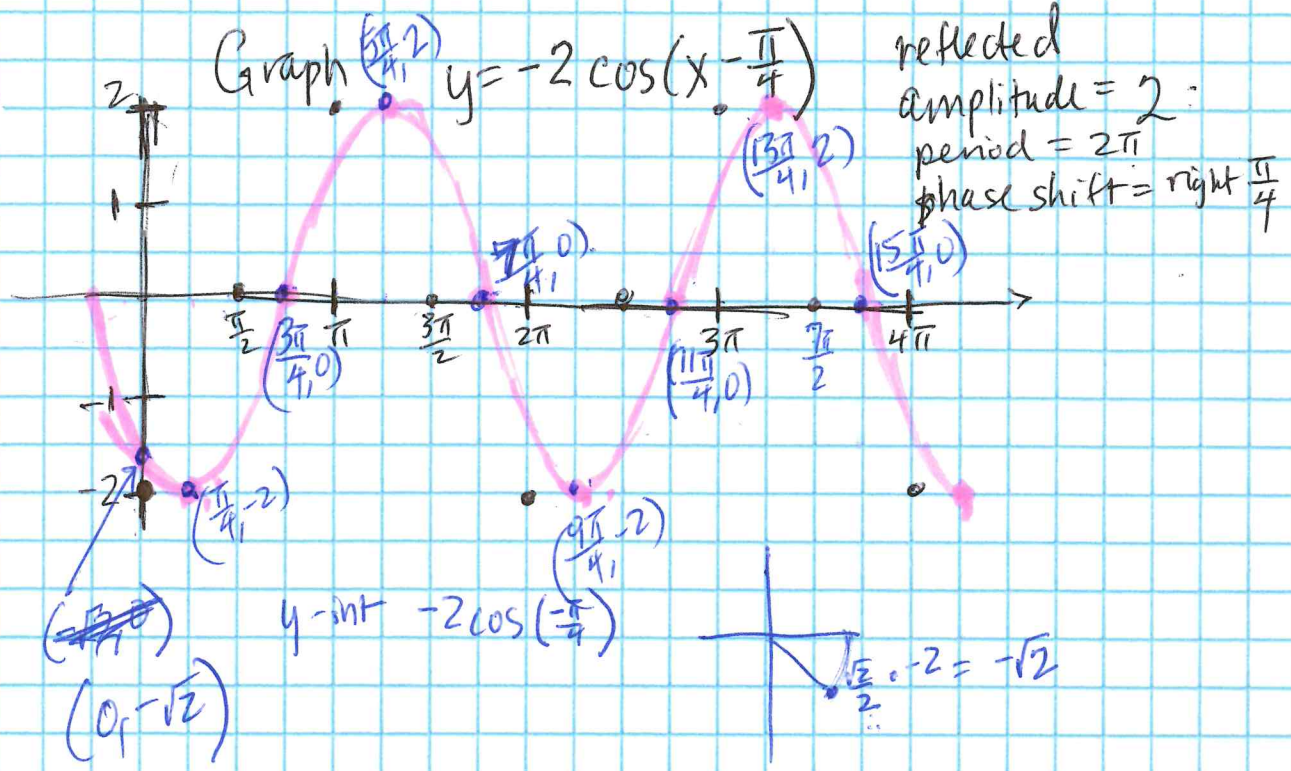 Graph y = -2 cos(x - π/4)
reflected
amplitude = 2
period = 2π
phase shift = right π/4
(5π/4, 2)
2
(13π/4, 2)
1
(7π/4, 0)
(15π/4, 0)
π/2
π
3π/2
2π
3π
7π/2
4π
(3π/4, 0)
(11π/4, 0)
-1
-2
(π/4, -2)
(9π/4, -2)
y-int -2cos(-π/4)
√2/2 · -2 = -√2
(0, -√2)